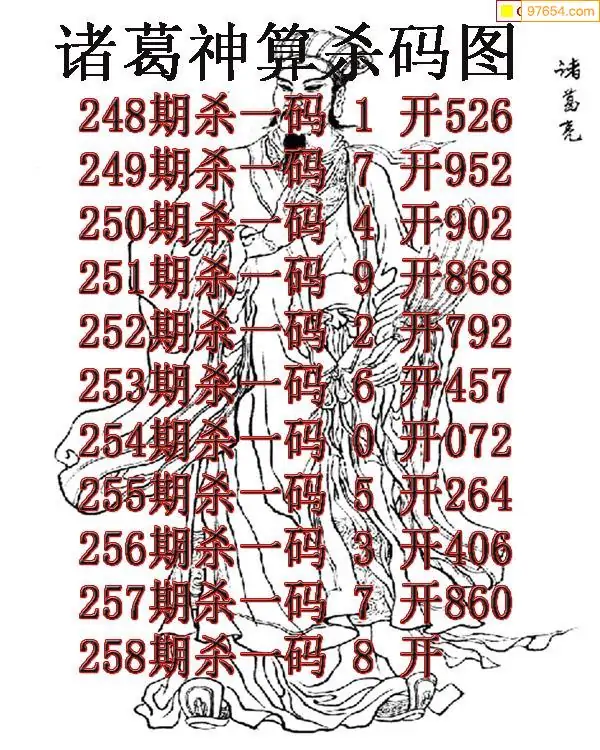 97654.com
诸葛神算杀码图
诸葛亮
248期杀一码 1 开526
249期杀一码 7 开952
250期杀一码 4 开902
251期杀一码 9 开868
252期杀一码 2 开792
253期杀一码 6 开457
254期杀一码 0 开072
255期杀一码 5 开264
256期杀一码 3 开406
257期杀一码 7 开860
258期杀一码 8 开